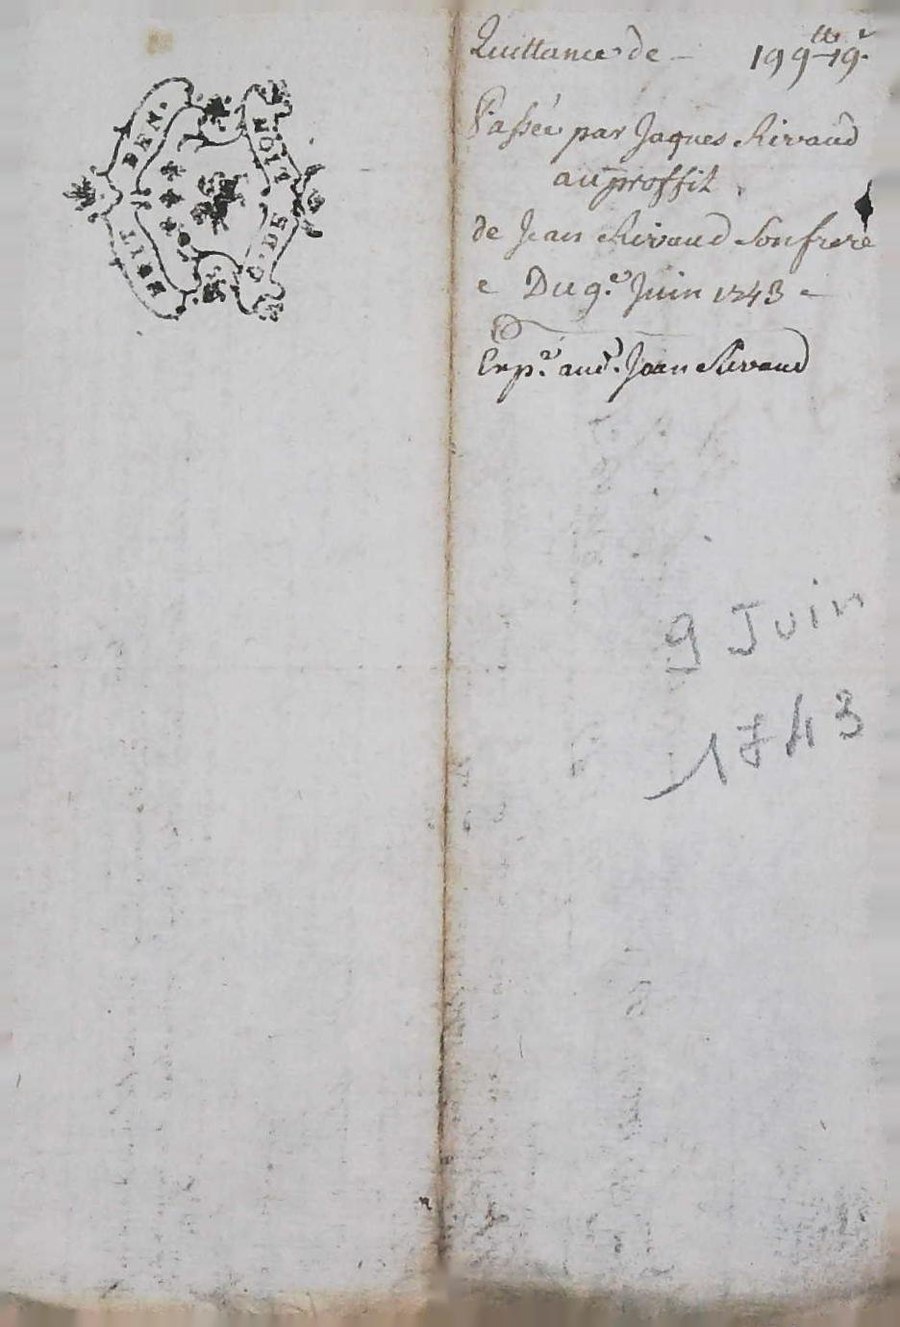 Quittance de — 199tt 19s
Passée par Jaques Rivaud
au proffit
de Jean Rivaud Son frere
Du 9e Juin 1743
Expe. aud. Jean Rivaud
9 Juin
1743